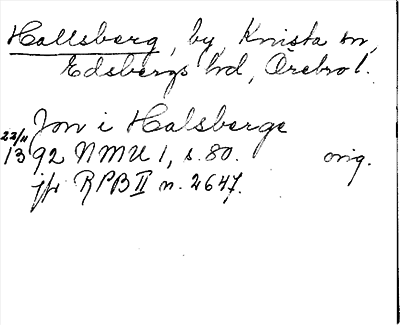 Hallsberg, by, Knista sn,
Edsbergs hd, Örebro l.
Jon i Halsberge
22/11
1392 NMU 1, s. 80. orig.
jfr RPB II n. 2647.